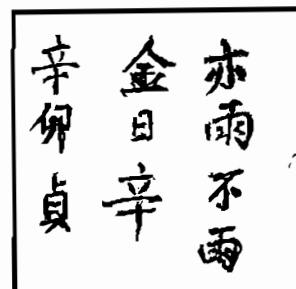 亦雨不雨
金日辛
辛卯貞